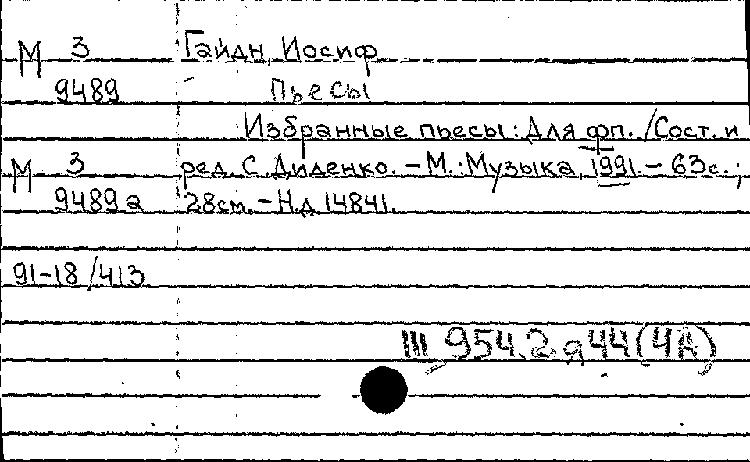 М 3 Гайдн, Иосиф
9489 Пьесы
Избранные пьесы: Для фп. /Сост. и
М 3 ред. С. Диденко. – М.: Музыка, 1991. – 63с.;
9489а 28см. – Н.д. 14841.
91-18/413
III 954.2 я 44 (4А)